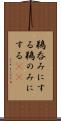 鵜呑みにす
る鵜のみに
する